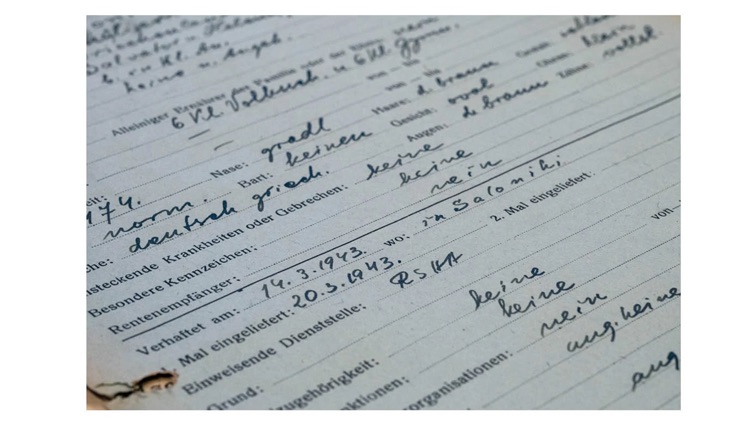 Salvator u. Helena
6. ... Kl. An.
keine u. Angeh.
Alleiniger Ernährer der Familie oder der Eltern:
6 Kl. Volksch. u. 6 Kl. Gymn.
von — bis
von — bis
Nase: gradl Haare: d. braun Gestalt:
174. Bart: keinen Gesicht: oval Ohren:
norm. Augen: d. braun Zähne: vollst.
che: deutsch griech.
nsteckende Krankheiten oder Gebrechen: keine
Besondere Kennzeichen: keine
Rentenempfänger: nein
Verhaftet am: 14. 3. 1943. wo: in Saloniki
Mal eingeliefert: 20.3.1943. 2. Mal eingeliefert:
Einweisende Dienststelle: RSHA
Grund: von
zugehörigkeit: keine
ktionen: keine
organisationen: nein
ang. keine
ang